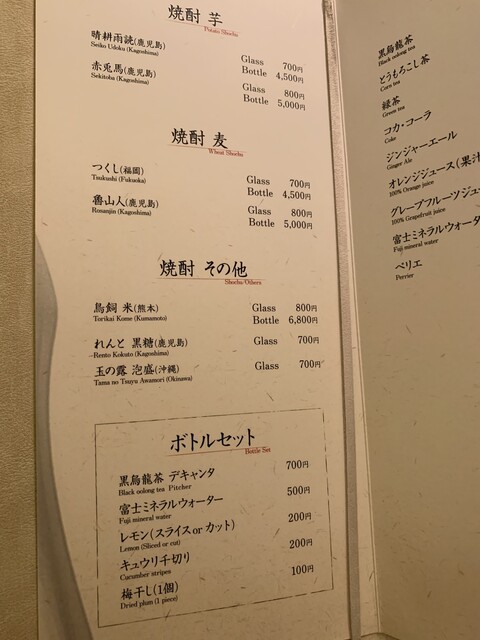 焼酎 芋
Potato Shochu
晴耕雨読(鹿児島)
Seiko Udoku (Kagoshima)
Glass 700円
Bottle 4,500円
赤兎馬(鹿児島)
Sekitoba (Kagoshima)
Glass 800円
Bottle 5,000円
焼酎 麦
Wheat Shochu
つくし(福岡)
Tsukushi (Fukuoka)
Glass 700円
Bottle 4,500円
魯山人(鹿児島)
Rosanjin (Kagoshima)
Glass 800円
Bottle 5,000円
焼酎 その他
Shochu Others
鳥飼 米(熊本)
Torikai Kome (Kumamoto)
Glass 800円
Bottle 6,800円
れんと 黒糖(鹿児島)
Rento Kokuto (Kagoshima)
Glass 700円
玉の露 泡盛(沖縄)
Tama no Tsuyu Awamori (Okinawa)
Glass 700円
ボトルセット
Bottle Set
黒烏龍茶 デキャンタ 700円
Black oolong tea Pitcher
富士ミネラルウォーター 500円
Fuji mineral water
レモン(スライス or カット) 200円
Lemon (Sliced or cut)
キュウリ千切り 200円
Cucumber stripes
梅干し(1個) 100円
Dried plum (1 piece)
黒烏龍茶
Black oolong tea
とうもろこし茶
Corn tea
緑茶
Green tea
コカ・コーラ
Coke
ジンジャーエール
Ginger Ale
オレンジジュース(果汁
100% Orange juice
グレープフルーツジュ
100% Grapefruit juice
富士ミネラルウォータ
Fuji mineral water
ペリエ
Perrier